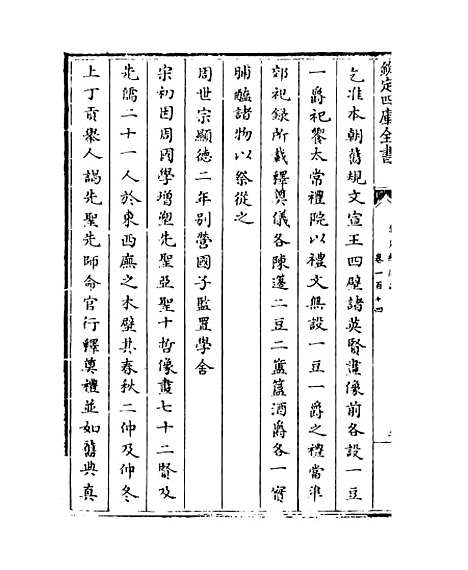 欽定四庫全書
卷一百十四
乞准本朝舊規文宣王四壁諸英賢畫像前各設一豆
一爵祀饗太常禮院以禮文無設一豆一爵之禮當准
郊祀録所載釋奠儀各陳籩二豆二簠簋酒爵各一實
脯醢諸物以祭從之
周世宗顯徳二年别營國子監置學舍
宋初因周國學增塑先聖亞聖十哲像畫七十二賢及
先儒二十一人於東西廡之木壁其春秋二仲及仲冬
上丁貢舉人謁先聖先師命官行釋奠禮並如舊典真